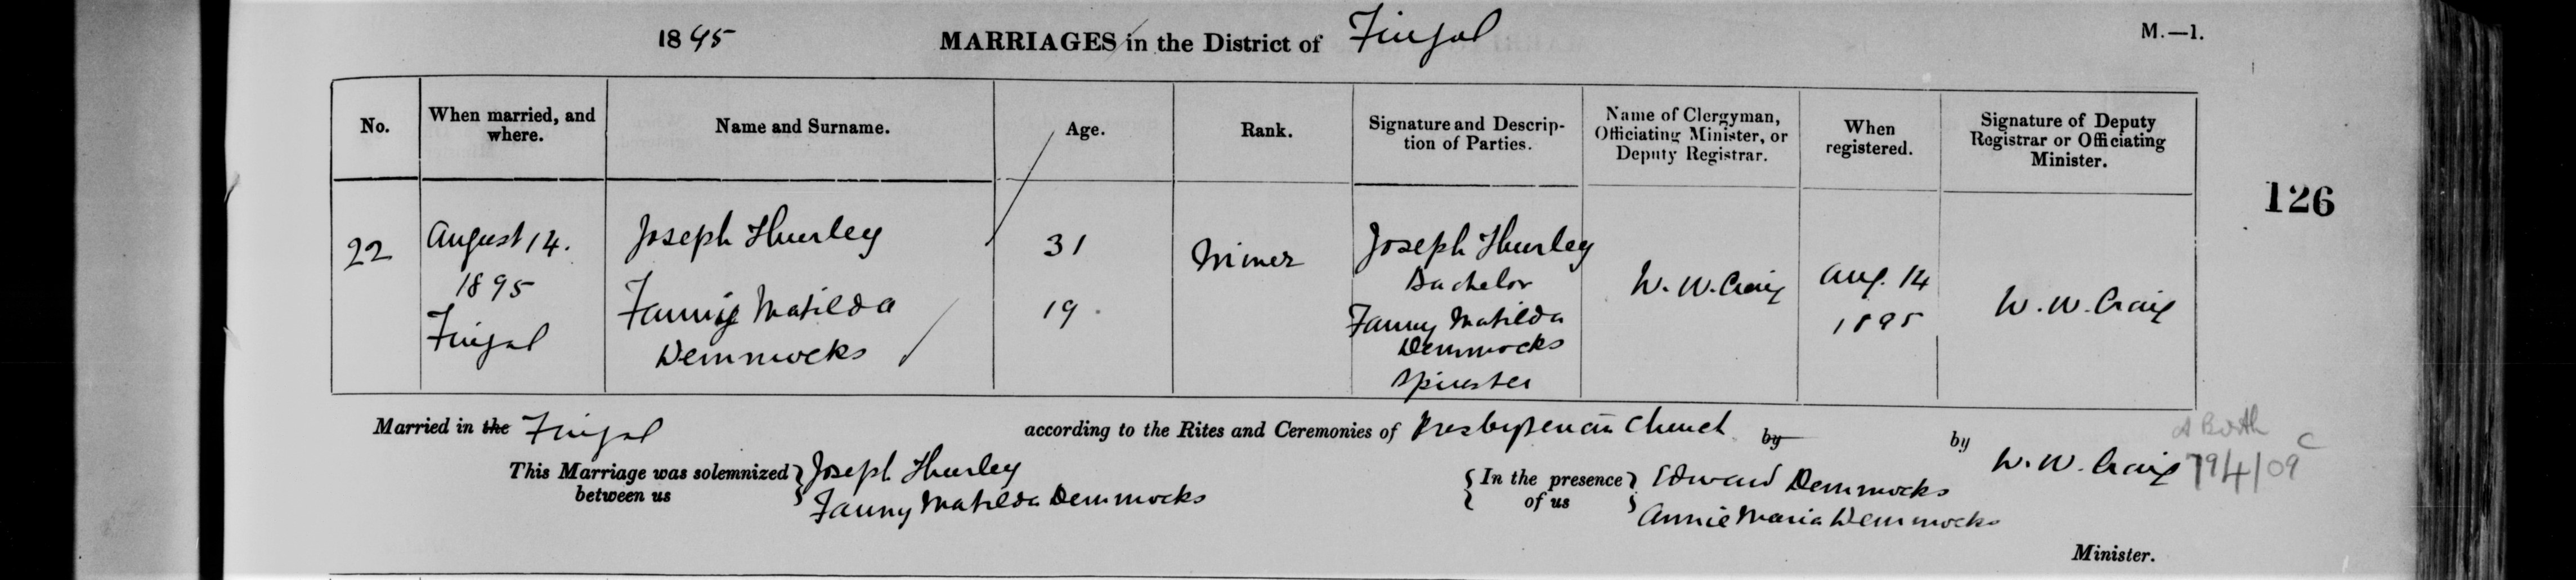 1895 MARRIAGES in the District of Fingal M.—1.
No. When married, and where. Name and Surname. Age. Rank. Signature and Description of Parties. Name of Clergyman, Officiating Minister, or Deputy Registrar. When registered. Signature of Deputy Registrar or Officiating Minister.
126
22
August 14.
1895
Fingal
Joseph Hurley
Fanny Matilda
Demmocks
31
19
Miner
Joseph Hurley
Bachelor
Fanny Matilda
Demmocks
Spinster
W. W. Craig
Aug. 14
1895
W. W. Craig
Married in the Fingal according to the Rites and Ceremonies of Presbyterian Church by by W. W. Craig
This Marriage was solemnized between us
Joseph Hurley
Fanny Matilda Demmocks
In the presence of us
Edward Demmocks
Annie Maria Demmocks
Minister.